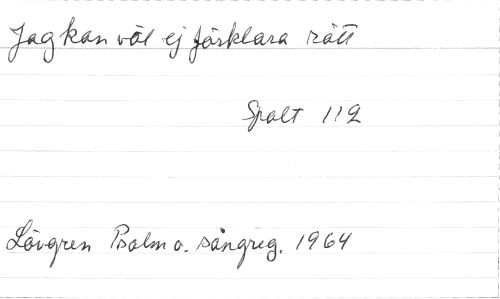 Jag kan väl ej förklara rätt
Spalt 112
Lövgren Psalm o. sångreg. 1964